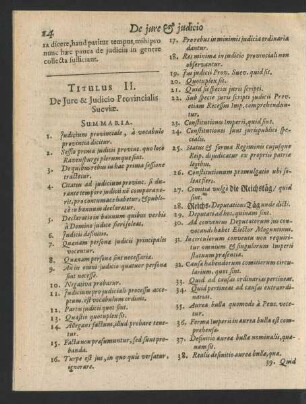 24
De jure & judicio
ta dicere, haud patitur tempus, mihi pro
nunc hæc pauca de judiciis in genere
collecta sufficiant.
TITULUS II.
De Jure & Judicio Provincialis
Sueviæ.
SUMMARIA.
1. Judicium provinciale, à vocabulo
provincia dicitur.
2. Sessa primo judicii provinc. quo loco
Ravenspurgi plerumque sint.
3. De quibus rebus in hac prima sessione
tractetur.
4. Citatus ad judicium provinc. si du-
rante tempore judicii nō comparue-
rit, pro contumace habetur, & publi-
cè in bannum declaratur.
5. Declaratio in bannum quibus verbis
à Domino judice fieri soleat.
6. Judicis definitio.
7. Quænam persona judicii principales
vocentur.
8. Quænam persona sint necessaria.
9. An in omni judicio quatuor persona
sint necesse.
10. Negativa probatur.
11. Judicium pro judiciali processu ac-
ceptum, est vocabulum ordinis.
12. Partes judicii quot sint.
13. Quæstio quotuplex sit.
14. Allegans fallam, illud probare tene-
tur.
15. Falla non præsumuntur, sed sunt pro-
banda.
16. Turpe est jus, in quo quis versatur,
ignorare.
17. Præcebus in minimis judicia ordinaria
dantur.
18. Rei minima in judicio provinciali non
observantur.
19. Jus judicii Prov. Suev. quid sit.
20. Quotuplex sit.
21. Quid sit species juris scripti.
22. Sub specie juris scripti judicii Provi-
etiam Recessus Imp. comprehendun-
tur.
23. Constitutiones Imperii, quid sint.
24. Constitutiones sunt jurispublici spe-
cialis.
25. Status & forma Regiminis cujusque
Reip. dijudicatur ex propriis patriæ
legibus.
26. Constitutionum promulgatio ubi
fiat.
27. Comitia vulgò die Reichstäg/ quid
sint.
28. Reichs-Deputations-Täg unde dicti.
29. Deputati ad hos, quinam sint.
30. Ad conventus Deputatorum jus con-
vocandi habet Elector Moguntinus.
31. In circulorum conventu non requiri-
tur omnium & singulorum Imperii
statuum præsentia.
32. Causa habendorum comitiorum circu-
larium, quæ sint.
33. Quid ad causas ordinarias pertineat.
34. Quid pertineat ad causas extraordi-
narias.
35. Aurea bulla quomodo à Prov. voce-
tur.
36. Forma Imperii in aurea bulla est com-
prehensa.
37. Definitio aureæ bullæ nominalis, quæ-
nam sit.
38. Realis definitio aureæ bullæ, quæ.
39. Quid